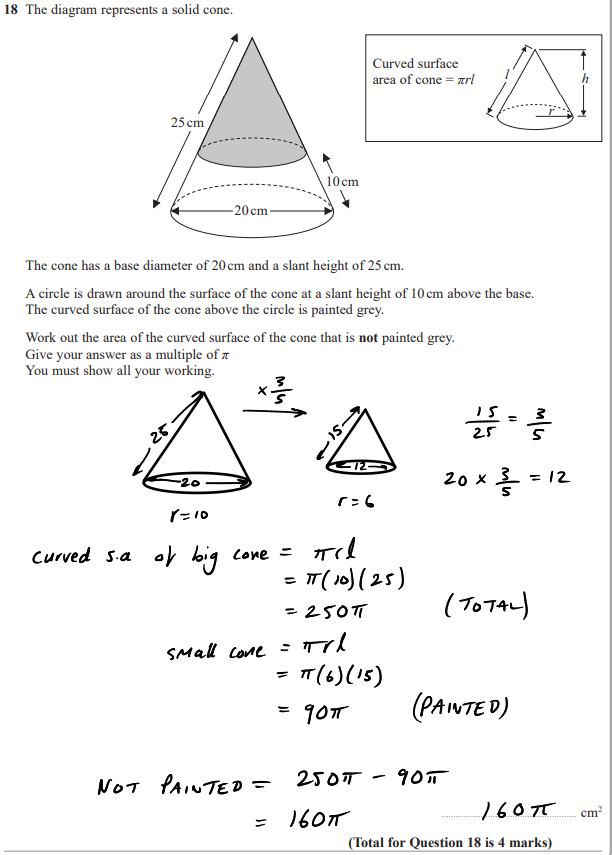 18 The diagram represents a solid cone.
Curved surface
area of cone = πrl
l
h
r
25 cm
10 cm
20 cm
The cone has a base diameter of 20 cm and a slant height of 25 cm.
A circle is drawn around the surface of the cone at a slant height of 10 cm above the base.
The curved surface of the cone above the circle is painted grey.
Work out the area of the curved surface of the cone that is not painted grey.
Give your answer as a multiple of π
You must show all your working.
× 3/5
25
20
r=10
15
12
r=6
15/25 = 3/5
20 × 3/5 = 12
Curved s.a of big cone = πrl
= π(10)(25)
= 250π (TOTAL)
small cone = πrl
= π(6)(15)
= 90π (PAINTED)
NOT PAINTED = 250π - 90π
= 160π
160π cm²
(Total for Question 18 is 4 marks)